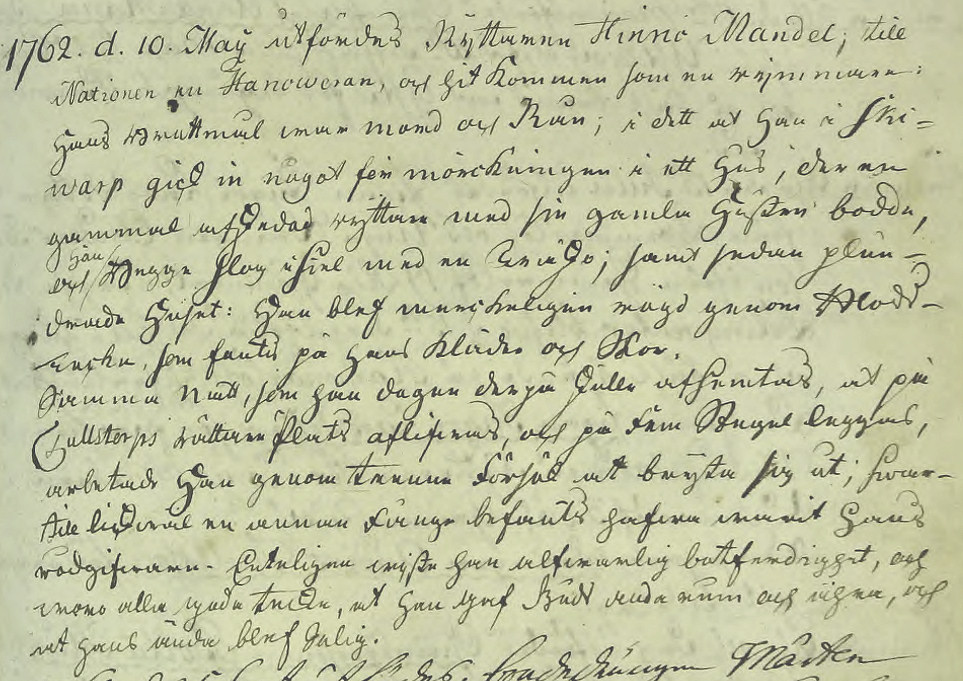 1762. d. 10. Maÿ utfördes Ryttaren Hinric Mandel; till
Nationen en Hanoweran, och hit kommen som en
Hans brottmål war mord och Rån; i dett at han i Ski=
warp gick in något för mörckningen i ett Hus, der en
gammal afskedad ryttare med sin gamla Hustru bodde,
och han begge slog ihiel med en; samt sedan plun=
drade Huset: Han blef merckeligen röjd genom Blods=
, som fants på hans Kläder och Skor.
Samma Natt, som han dagen derpå skulle afhemtas, at på
Cullstorps rättare Plats aflifwas, och på fem Stegel leggas,
arbetade Han genom trenne Försök att bryta sig ut; hwar=
till likwäl en annan Fånge befants hafwa warit Hans
rådgifware. Enteligen wiste han alfwarlig botferdighet, och
woro alla goda tecken, at han gaf Gudi anda rum och ähra, och
at hans ände blef Salig.
Mårten